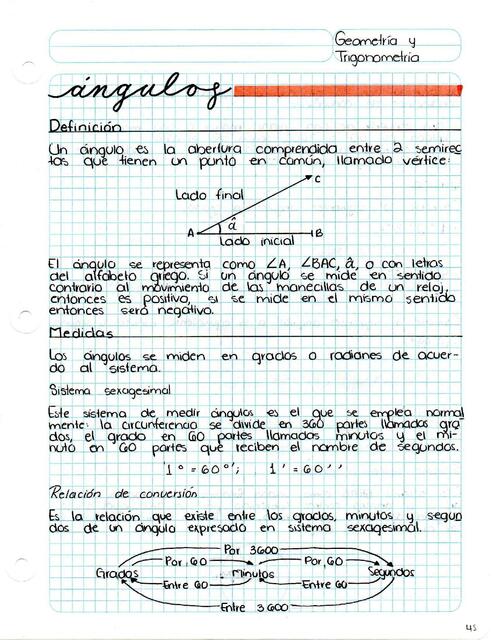 Geometría y
Trigonometría
ángulos
Definición
Un ángulo es la abertura comprendida entre 2 semirec
tas que tienen un punto en común, llamado vértice:
C
Lado final
â
A
B
Lado inicial
El ángulo se representa como ∠A, ∠BAC, â, o con letras
del alfabeto griego. Si un ángulo se mide en sentido
contrario al movimiento de las manecillas de un reloj,
entonces es positivo, si se mide en el mismo sentido
entonces será negativo.
Medidas
Los ángulos se miden en grados o radianes de acuer-
do al sistema.
Sistema sexagesimal
Este sistema de medir ángulos es el que se emplea normal
mente: la circunferencia se divide en 360 partes llamados gra-
dos, el grado en 60 partes llamados minutos y el mi-
nuto en 60 partes que reciben el nombre de segundos.
1° = 60°'; 1' = 60''
Relación de conversión
Es la relación que existe entre los grados, minutos y segun
dos de un ángulo expresado en sistema sexagesimal.
Por 3600
Por 60 Por 60
Grados Minutos Segundos
Entre 60 Entre 60
Entre 3600
45